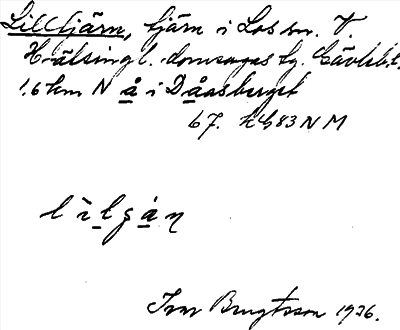 Lilltjärn, tjärn i Los sn. V.
Hälsingl. domsagas tg. Gävlebl.
1,6 km N å i Dåasberget
67.
lìlgáη
Ivar Bengtsson 1926.